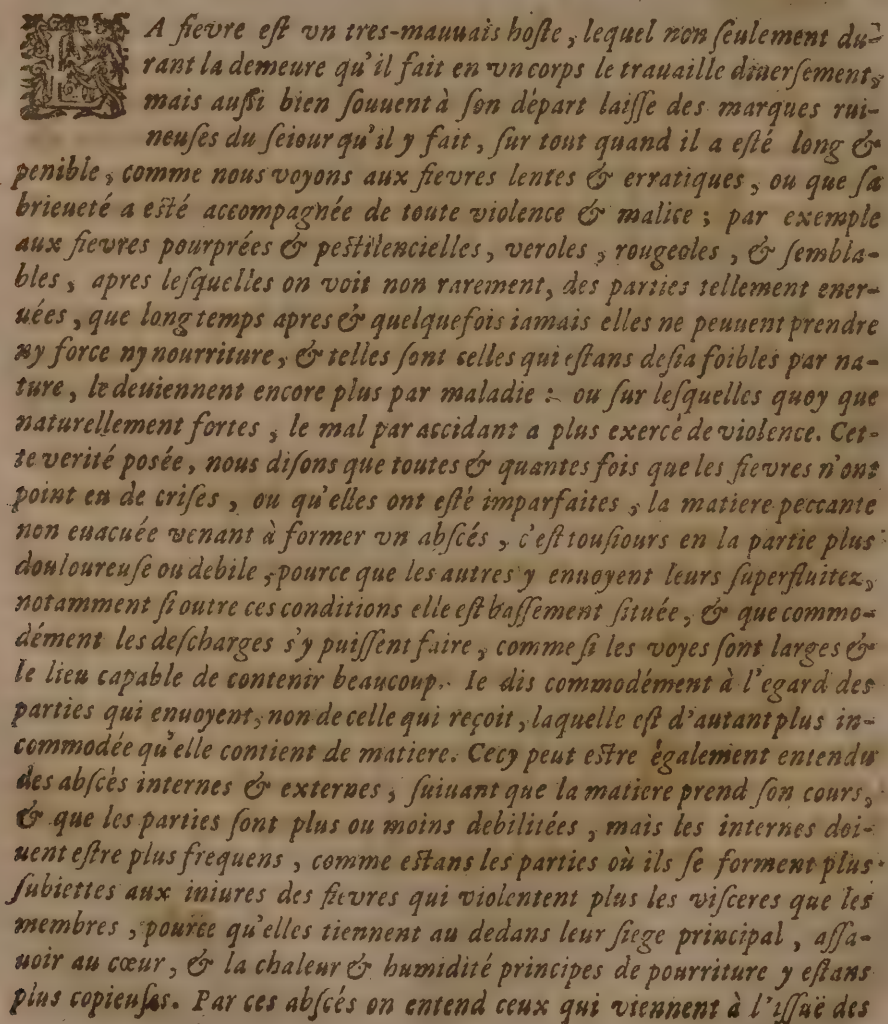 LA fievre eſt vn tres-mauuais hoſte, lequel non ſeulement du-
rant la demeure qu'il fait en vn corps le trauaille diuerſement,
mais auſſi bien ſouuent à ſon départ laiſſe des marques rui-
neuſes du ſeiour qu'il y fait, ſur tout quand il a eſté long &
penible, comme nous voyons aux fievres lentes & erratiques, ou que ſa
brieueté a eſté accompagnée de toute violence & malice; par exemple
aux fievres pourprées & peſtilencielles, veroles, rougeoles, & ſembla-
bles, apres leſquelles on voit non rarement, des parties tellement ener-
uées, que long temps apres & quelquefois iamais elles ne peuuent prendre
ny force ny nourriture, & telles ſont celles qui eſtans deſia foibles par na-
ture, le deuiennent encore plus par maladie: ou ſur leſquelles quoy que
naturellement fortes, le mal par accidant a plus exercé de violence. Cet-
te verité poſée, nous diſons que toutes & quantes fois que les fievres n'ont
point eu de criſes, ou qu'elles ont eſté imparfaites, la matiere peccante
non euacuée venant à former vn abſcés, c'eſt touſiours en la partie plus
douloureuſe ou debile, pource que les autres y enuoyent leurs ſuperfluitez,
notamment ſi outre ces conditions elle eſt baſſement ſituée, & que commo-
dément les deſcharges s'y puiſſent faire, comme ſi les voyes ſont larges &
le lieu capable de contenir beaucoup. Ie dis commodément à l'egard des
parties qui enuoyent, non de celle qui reçoit, laquelle eſt d'autant plus in-
commodée qu'elle contient de matiere. Cecy peut eſtre également entendu
des abſcès internes & externes, ſuiuant que la matiere prend ſon cours,
& que les parties ſont plus ou moins debilitées, mais les internes doi-
uent eſtre plus frequens, comme eſtans les parties où ils ſe forment plus
ſubiettes aux iniures des fievres qui violentent plus les viſceres que les
membres, pource qu'elles tiennent au dedans leur ſiege principal, aſſa-
uoir au cœur, & la chaleur & humidité principes de pourriture y eſtans
plus copieuſes. Par ces abſcés on entend ceux qui viennent à l'iſſuë des